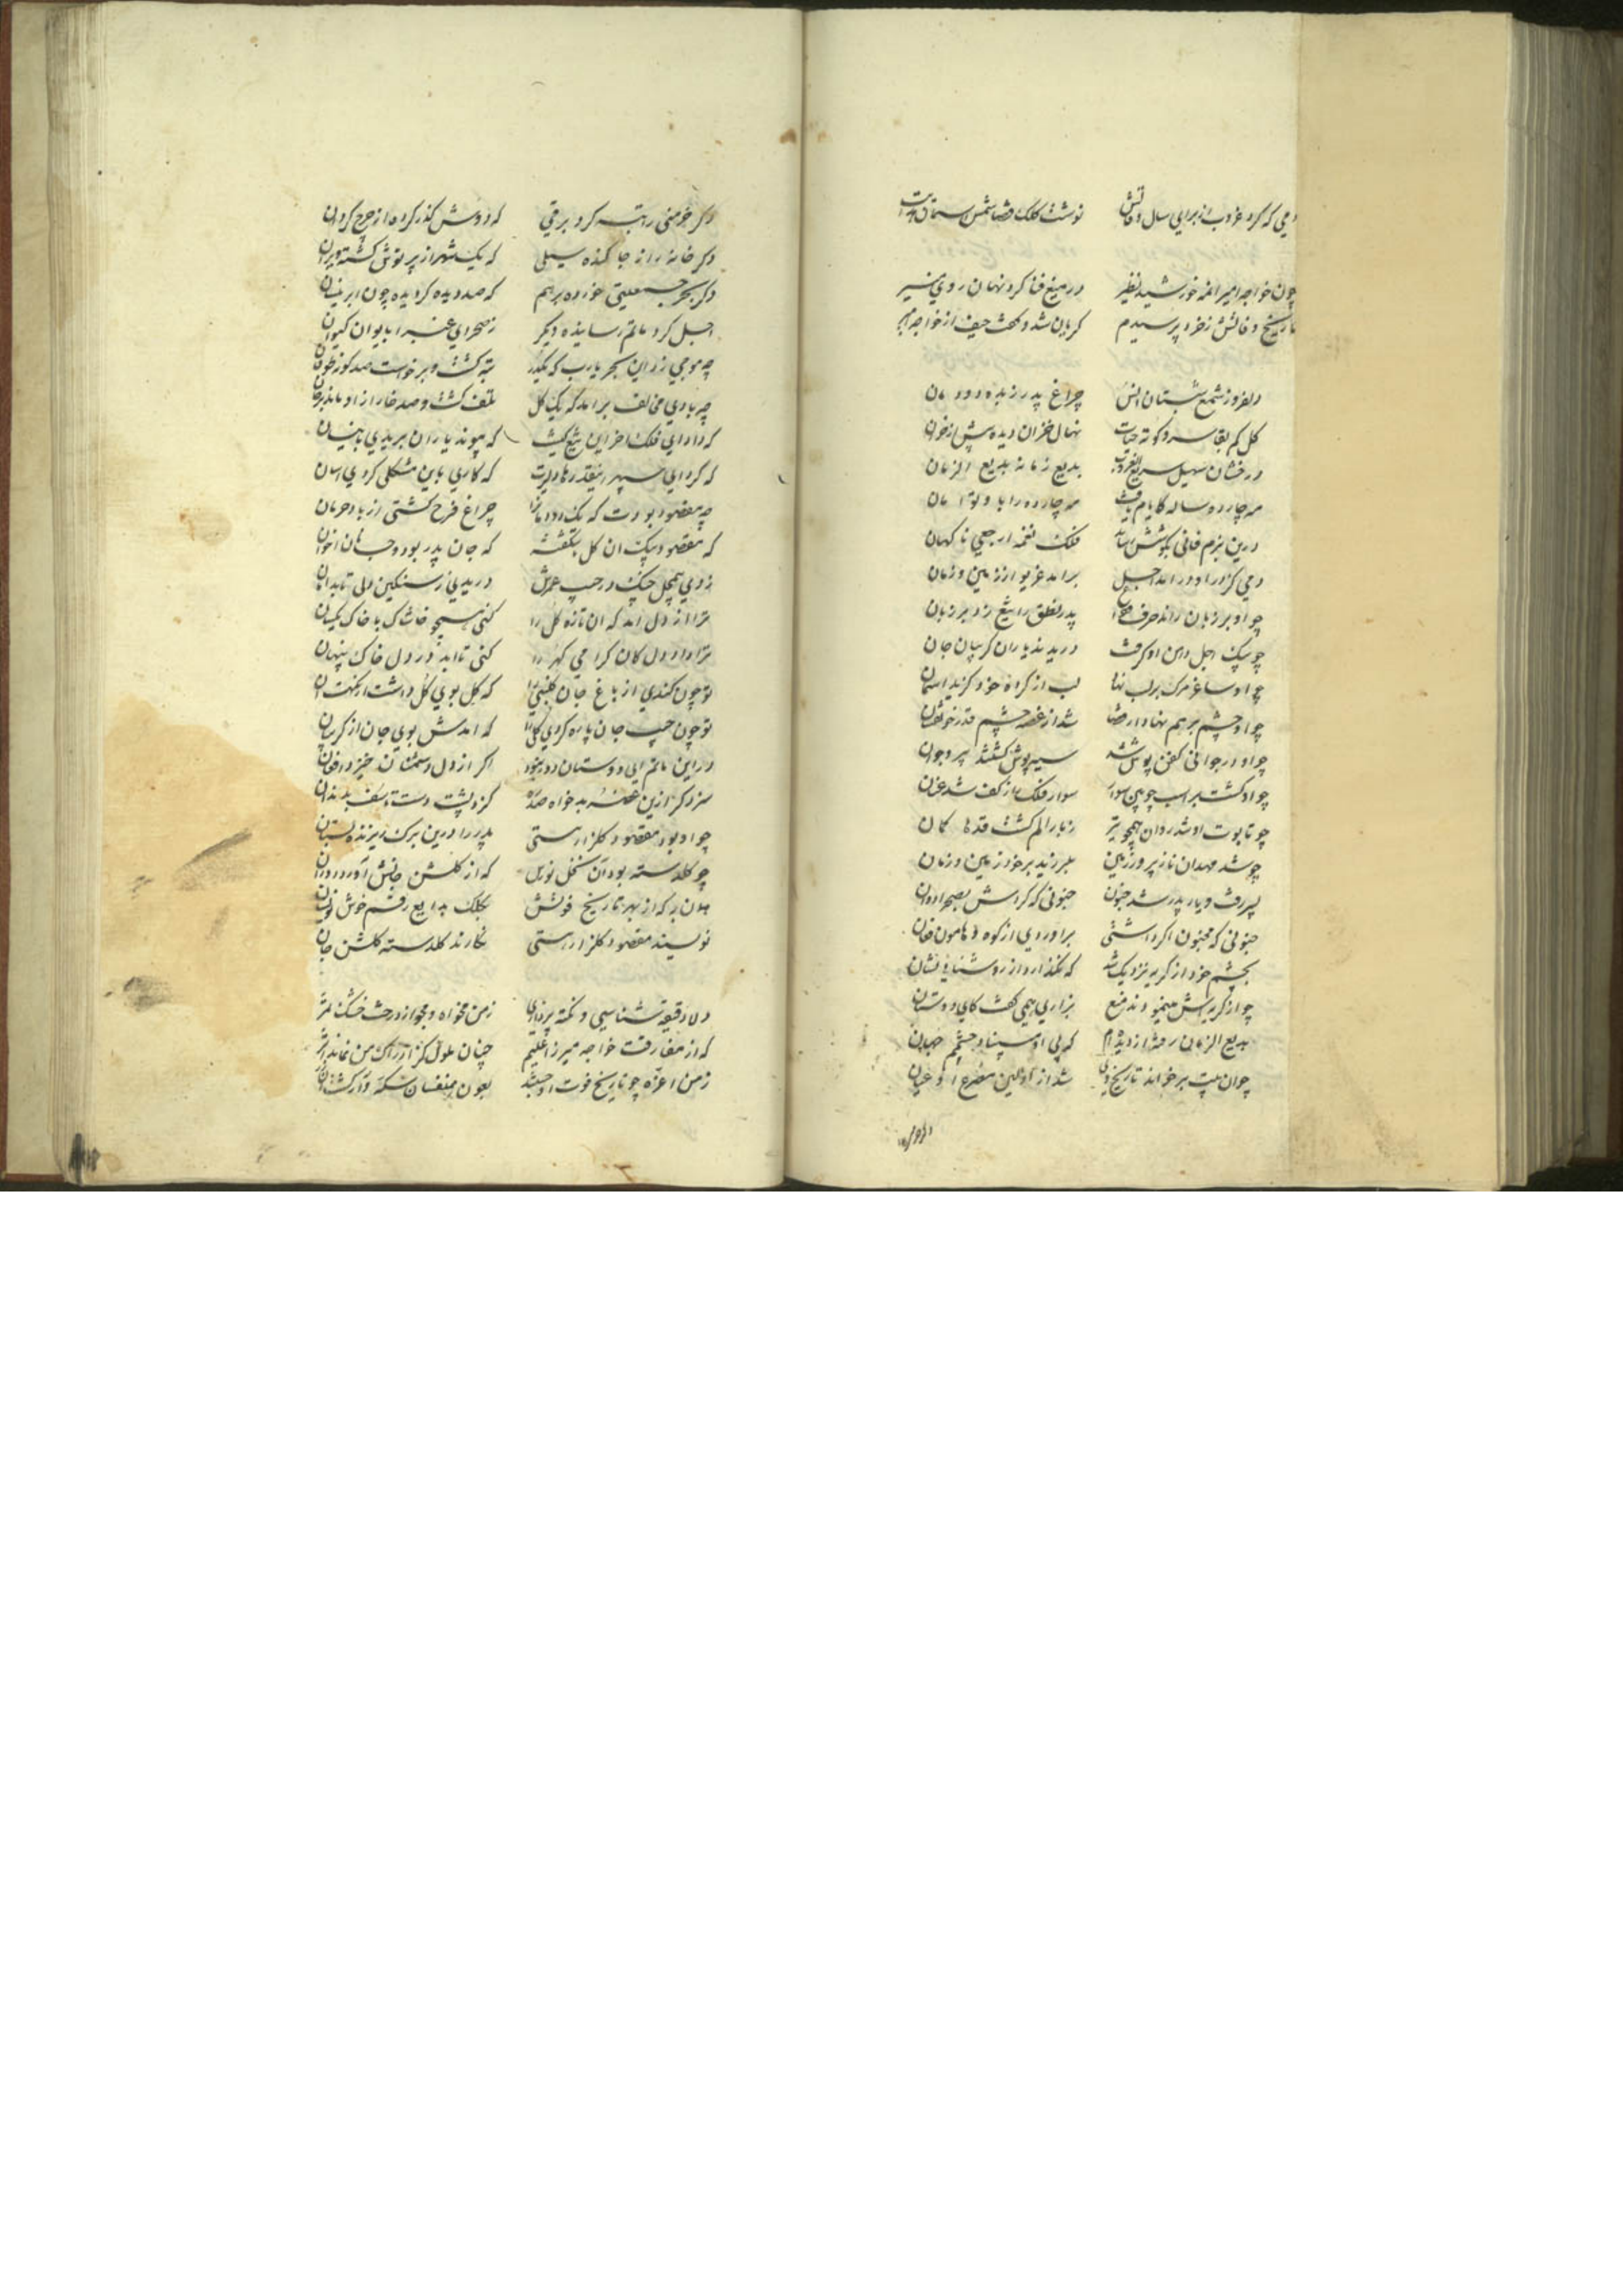 دمی که کرد غروب از برای سال وفاتش نوشت کلک قضا شمس
چون خواجه امیر انکه خورشید نظیر در میغ فنا کرد نهان روی منیر
تاریخ وفاتش ز خرد پرسیدم کریان شد و کفت حیف از خواجه امیر
دلفروز شمع شبستان انس چراغ پدر زبده دودمان
کل کم بقا سرو کوته حیات نهال خزان دیده پیش از خزان
درخشان سهیل سریع الغروب بدیع زمانه بدیع الزمان
مه چارده ساله کایام یافت مه چارده را با و توامان
درین بزم فانی بکوشش رساند فلک نغمه ارجعی ناکهان
دمی کز درا و در امد اجل برامد غریو از زمین و زمان
چو او بر زبان راند حرف پدر نطق را تیغ زد بر زبان
چو پیک اجل دامن او کرفت دریدند یاران کریبان جان
چو او ساغر مرک بر لب نهاد لب از کرده خود کزید اسمان
چو او چشم بر هم نهاد از قضا شد از غصه چشم قدر خونفشان
چو او در جوانی کفن پوش شد سیه پوش کشتند پیر و جوان
چو او کشت بر اسب چوبین سوار سوار فلک را ز کف شد عنان
چو تابوت او شد روان همچو تیر ز بار الم کشت قدها کمان
چو شد مهد آن ناز پرور زمین بلرزید بر خود زمین و زمان
پسر رفت و یار پدر شد جنون جنونی که کردش بصحرا دوان
جنونی که مجنون اکر داشتی براوردی از کوه و هامون فغان
بچشم خود از کریه نزدیک شد که نکذارد از روشنایی نشان
چو از کریه اش مینمودند منع بزاری همی کفت کای دوستان
بدیع الزمان رفت از دیده ام که بی او مبیناد چشمم جهان
چو این بیت بر خواند تاریخ وی شد از اولین مصرع او عیان
دکر خرمنی را تبه کرد برقی که دودش کذر کرده از چرخ کردان
دکر خانه را ز جا کنده سیلی که یک شهر از پرتوش کشته ویران
دکر بحر جمعیتی خورده بر هم که صد دیده کردیده چون ابر نیسان
اجل کرد ماتم رسانیده دیکر ز صحرای غبرا بایوان کیوان
چه موجی زد این بحر یارب که یکدر تبه کشت و برخاست صد کونه طوفان
چه بادی مخالف برامد که یک کل تلف کشت و صد خار از او ماند بر جان
که داد ای فلک اخر این تیغ کینت که پیوند یاران بریدی بدینسان
که کرد ای سپهر اینقدرها دلیرت که کاری باین مشکلی کردی اسان
چه مقصود بودت که یک دودمان را چراغ فرح کشتی از باد حرمان
که مقصود پیک ان کل بشکفته که جان پدر بود و جانان اخوان
زدی همچو کل چنک در جیب عمرش دریدی ز سنکین دلی تا بدامان
ترا از دل امد که ان تازه کل را کنی همچو خاشاک با خاک یکسان
ترا داد دل کان کرامی کهر را کنی تا ابد در دل خاک پنهان
تو چون کندی از باغ جان کلبنی را که کل بوی کل داشت از نکهت ان
تو چون جیب جان پاره کردی کلی را که امدش بوی جان از کریبان
در این ماتم ای دوستان دور نبود اکر از دل دشمنان خیزد افغان
سزد کر ازین غصه بدخواه صد ره کزد پشت دست تاسف بدندان
چو او بود مقصود کلزار هستی پدر را درین برک ریزنده بستان
چو کلدسته بود آن نخل نورس که از کلشن جانش آورد دوران
همان به که از بهر تاریخ فوتش بکلک بدایع رقم خوش نویسان
نویسند مقصود کلزار هستی نکارند کلدسته کلشن جان
دلا دقیقه شناسی و نکته پردازی ز من مخواه و مجو از درخت خشک ثمر
که از مفارقت خواجه میرزا علیم چنان ملولم کز ادراک من نماند اثر
ز من اعزه چو تاریخ فوت او جستند بعون همنفسان